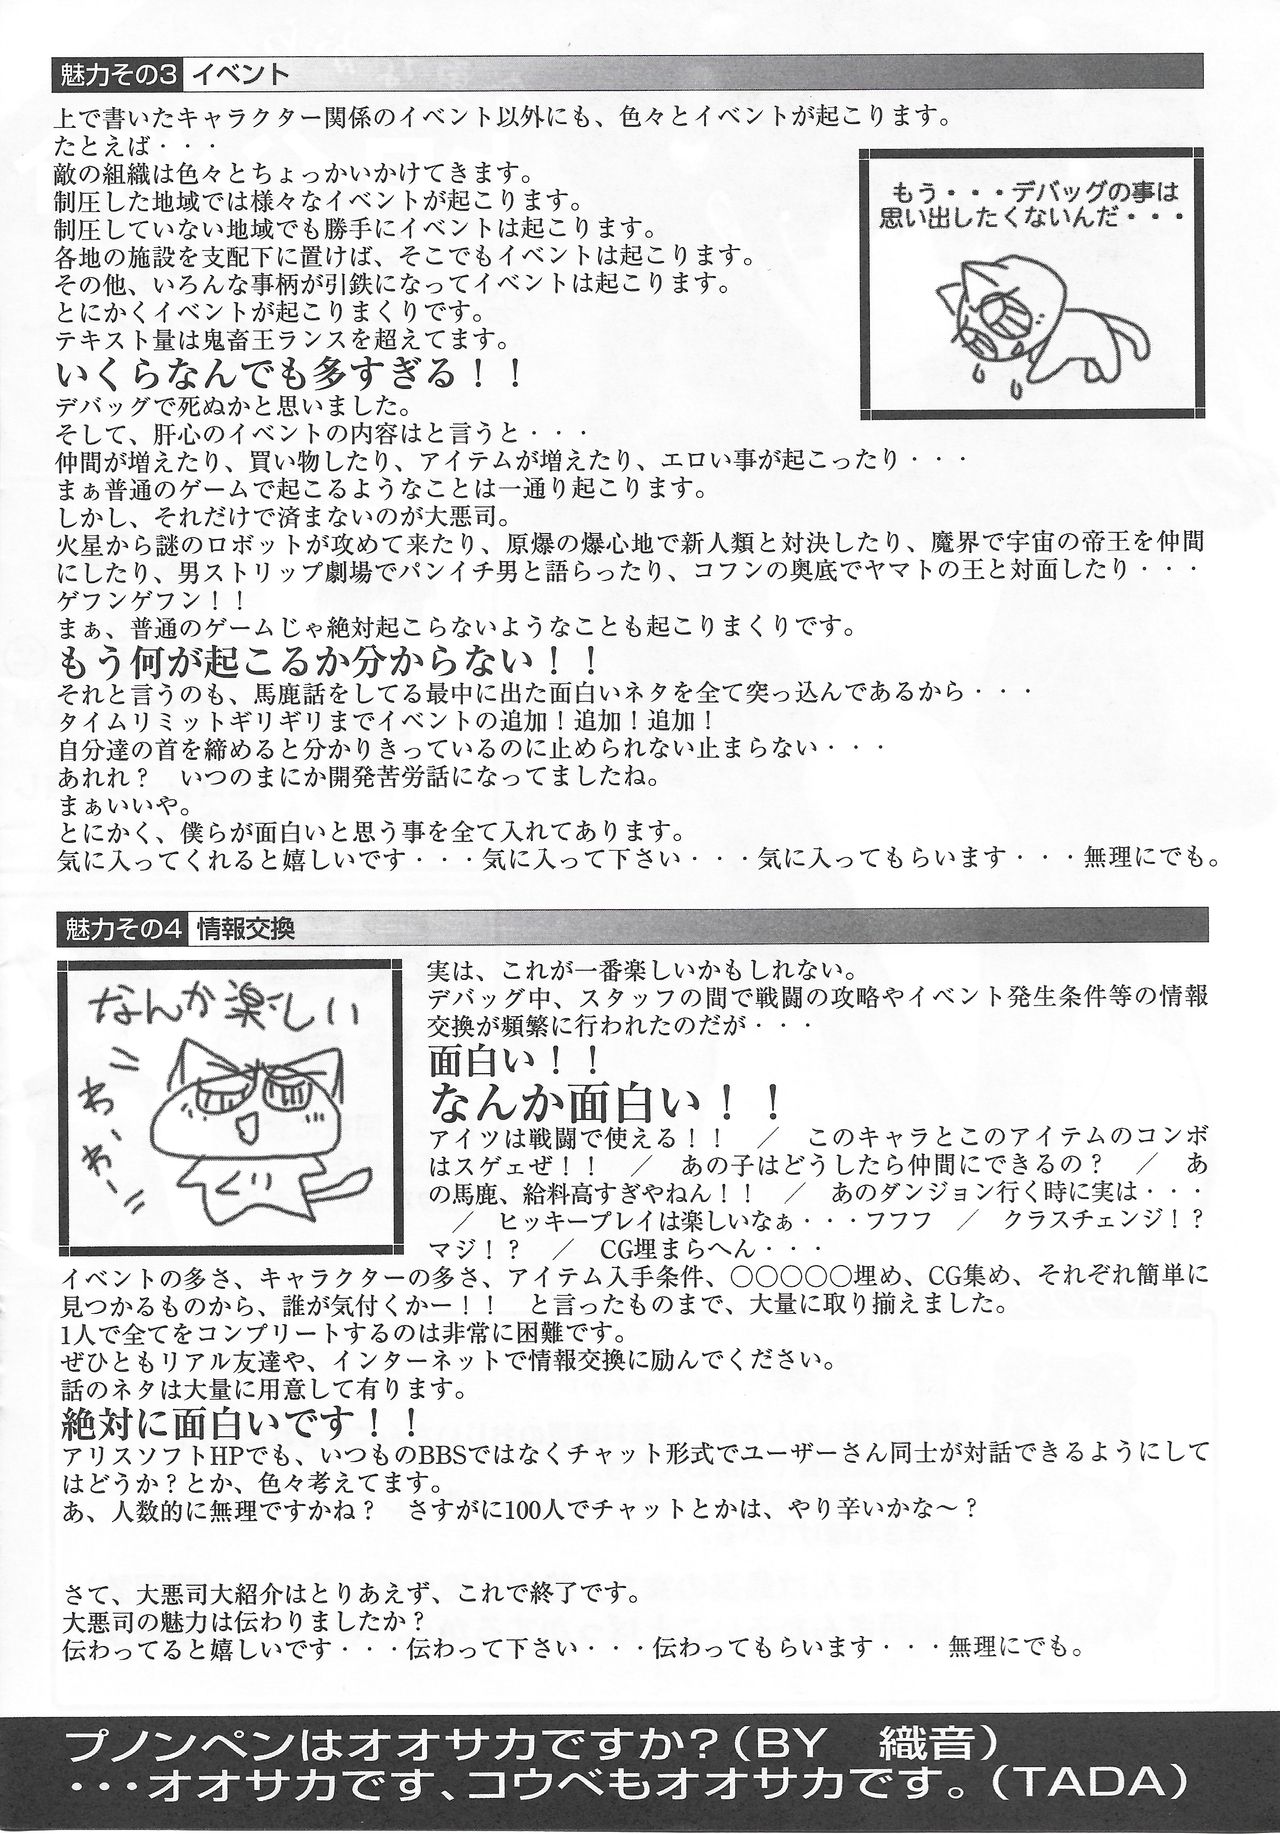 魅力その3 イベント
上で書いたキャラクター関係のイベント以外にも、色々とイベントが起こります。
たとえば・・・
敵の組織は色々とちょっかいかけてきます。
制圧した地域では様々なイベントが起こります。
制圧していない地域でも勝手にイベントは起こります。
各地の施設を支配下に置けば、そこでもイベントは起こります。
その他、いろんな事柄が引鉄になってイベントは起こります。
とにかくイベントが起こりまくりです。
テキスト量は鬼畜王ランスを超えてます。
いくらなんでも多すぎる！！
デバッグで死ぬかと思いました。
そして、肝心のイベントの内容はと言うと・・・
仲間が増えたり、買い物したり、アイテムが増えたり、エロい事が起こったり・・・
まぁ普通のゲームで起こるようなことは一通り起こります。
しかし、それだけで済まないのが大悪司。
火星から謎のロボットが攻めて来たり、原爆の爆心地で新人類と対決したり、魔界で宇宙の帝王を仲間
にしたり、男ストリップ劇場でパンイチ男と語らったり、コフンの奥底でヤマトの王と対面したり・・・
ゲフンゲフン！！
まぁ、普通のゲームじゃ絶対起こらないようなことも起こりまくりです。
もう何が起こるか分からない！！
それと言うのも、馬鹿話をしてる最中に出た面白いネタを全て突っ込んであるから・・・
タイムリミットギリギリまでイベントの追加！追加！追加！
自分達の首を締めると分かりきっているのに止められない止まらない・・・
あれれ？　いつのまにか開発苦労話になってましたね。
まぁいいや。
とにかく、僕らが面白いと思う事を全て入れてあります。
気に入ってくれると嬉しいです・・・気に入って下さい・・・気に入ってもらいます・・・無理にでも。
もう・・・デバッグの事は
思い出したくないんだ・・・
魅力その4 情報交換
なんか楽しい
わーわーこ
くい
実は、これが一番楽しいかもしれない。
デバッグ中、スタッフの間で戦闘の攻略やイベント発生条件等の情報
交換が頻繁に行われたのだが・・・
面白い！！
なんか面白い！！
アイツは戦闘で使える！！　／　このキャラとこのアイテムのコンボ
はスゲェぜ！！　／　あの子はどうしたら仲間にできるの？　／　あ
の馬鹿、給料高すぎやねん！！　／　あのダンジョン行く時に実は・・・
／　ヒッキープレイは楽しいなぁ・・・フフフ　／　クラスチェンジ！？
マジ！？　／　CG埋まらへん・・・
イベントの多さ、キャラクターの多さ、アイテム入手条件、〇〇〇〇〇埋め、CG集め、それぞれ簡単に
見つかるものから、誰が気付くかー！！　と言ったものまで、大量に取り揃えました。
1人で全てをコンプリートするのは非常に困難です。
ぜひともリアル友達や、インターネットで情報交換に励んでください。
話のネタは大量に用意して有ります。
絶対に面白いです！！
アリスソフトHPでも、いつものBBSではなくチャット形式でユーザーさん同士が対話できるようにして
はどうか？とか、色々考えてます。
あ、人数的に無理ですかね？　さすがに100人でチャットとかは、やり辛いかな～？
さて、大悪司大紹介はとりあえず、これで終了です。
大悪司の魅力は伝わりましたか？
伝わってると嬉しいです・・・伝わって下さい・・・伝わってもらいます・・・無理にでも。
プノンペンはオオサカですか？（BY　織音）
・・・オオサカです、コウベもオオサカです。（TADA）